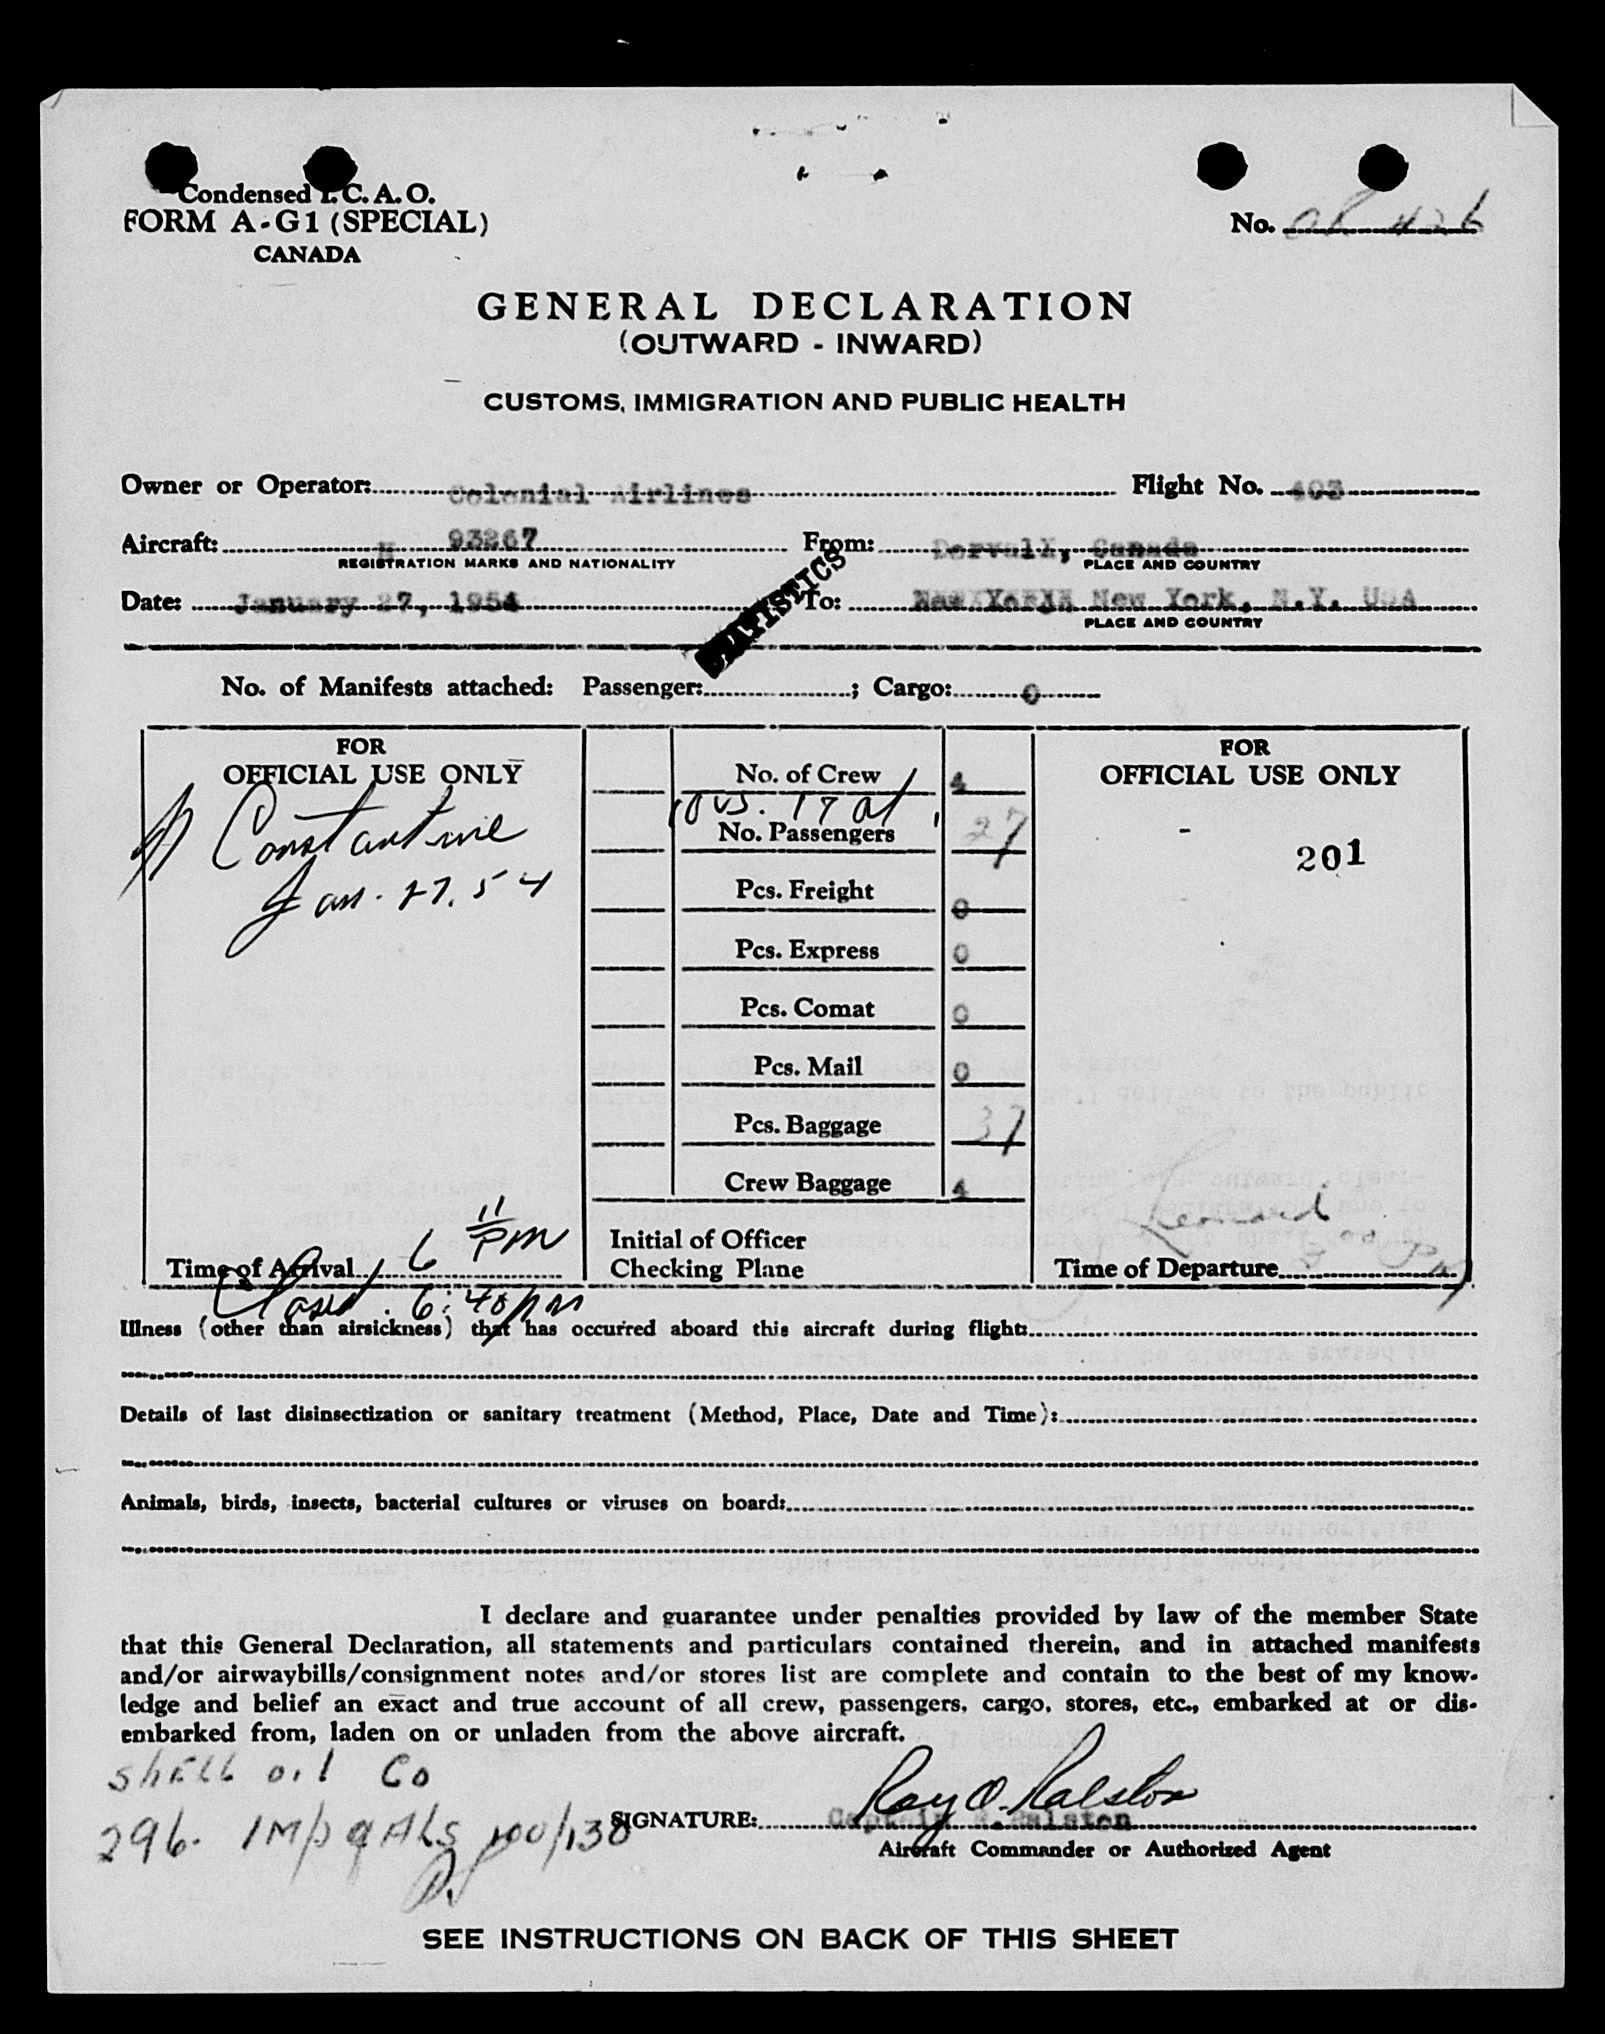 Condensed I.C.A.O.
FORM A-G1 (SPECIAL)
CANADA
No. 426
GENERAL DECLARATION
(OUTWARD - INWARD)
CUSTOMS, IMMIGRATION AND PUBLIC HEALTH
Owner or Operator: Colonial Airlines Flight No. 403
Aircraft: N 93267 From: Dorval, Canada
REGISTRATION MARKS AND NATIONALITY PLACE AND COUNTRY
Date: January 27, 1954 To: New York, N.Y. USA
PLACE AND COUNTRY
STATISTICS
No. of Manifests attached: Passenger: ; Cargo: 0
FOR
OFFICIAL USE ONLY
Constantine
Jan. 27. 54
Time of Arrival 6 11 PM
Closed. 6:40 pm
No. of Crew 4
10 US. 17 al
No. Passengers 27
Pcs. Freight 0
Pcs. Express 0
Pcs. Comat 0
Pcs. Mail 0
Pcs. Baggage 37
Crew Baggage 4
Initial of Officer
Checking Plane
FOR
OFFICIAL USE ONLY
201
Leonard
Time of Departure
Illness (other than airsickness) that has occurred aboard this aircraft during flight:
Details of last disinsectization or sanitary treatment (Method, Place, Date and Time):
Animals, birds, insects, bacterial cultures or viruses on board:
I declare and guarantee under penalties provided by law of the member State
that this General Declaration, all statements and particulars contained therein, and in attached manifests
and/or airwaybills/consignment notes and/or stores list are complete and contain to the best of my know-
ledge and belief an exact and true account of all crew, passengers, cargo, stores, etc., embarked at or dis-
embarked from, laden on or unladen from the above aircraft.
Shell oil Co
296. IMP gALS 100/130
Ray O. Ralston
SIGNATURE: Captain R. Ralston
Aircraft Commander or Authorized Agent
SEE INSTRUCTIONS ON BACK OF THIS SHEET